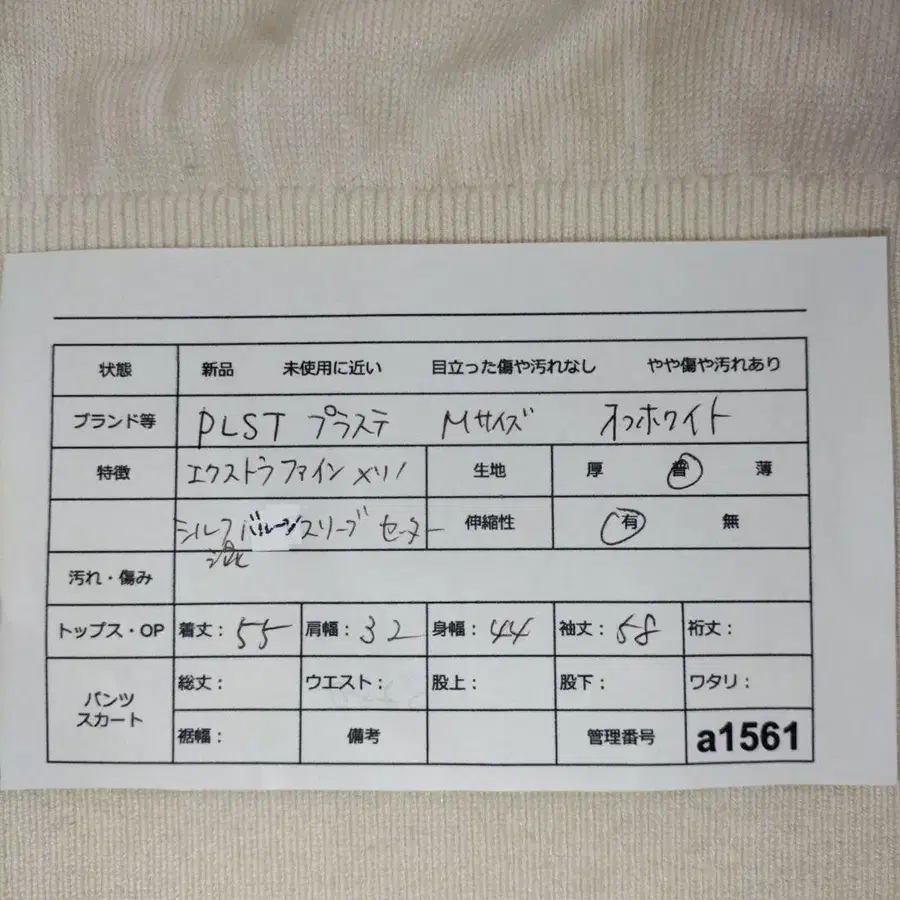 状態 新品 未使用に近い 目立った傷や汚れなし やや傷や汚れあり
ブランド等 PLST プラステ Mサイズ オフホワイト
特徴 エクストラファインメリノ 生地 厚 普 薄
シルク バルーンスリーブ セーター 伸縮性 有 無
汚れ・傷み
トップス・OP 着丈: 55 肩幅: 32 身幅: 44 袖丈: 58 裄丈:
パンツ スカート 総丈: ウエスト: 股上: 股下: ワタリ:
裾幅: 備考 管理番号 a1561